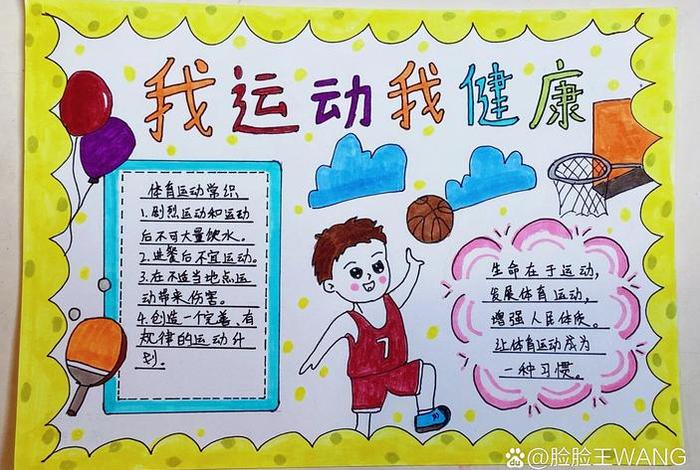 我运动我健康
体育运动常识
1.剧烈运动和运动
后不可大量饮水。
2.进餐后不宜运动。
3.在不适当地点运
动带来伤害。
4.创造一个完善、有
规律的运动计
划.
7
生命在于运动,
发展体育运动,
增强人民体质。
让体育运动成为
一种习惯。
@脸脸王WANG